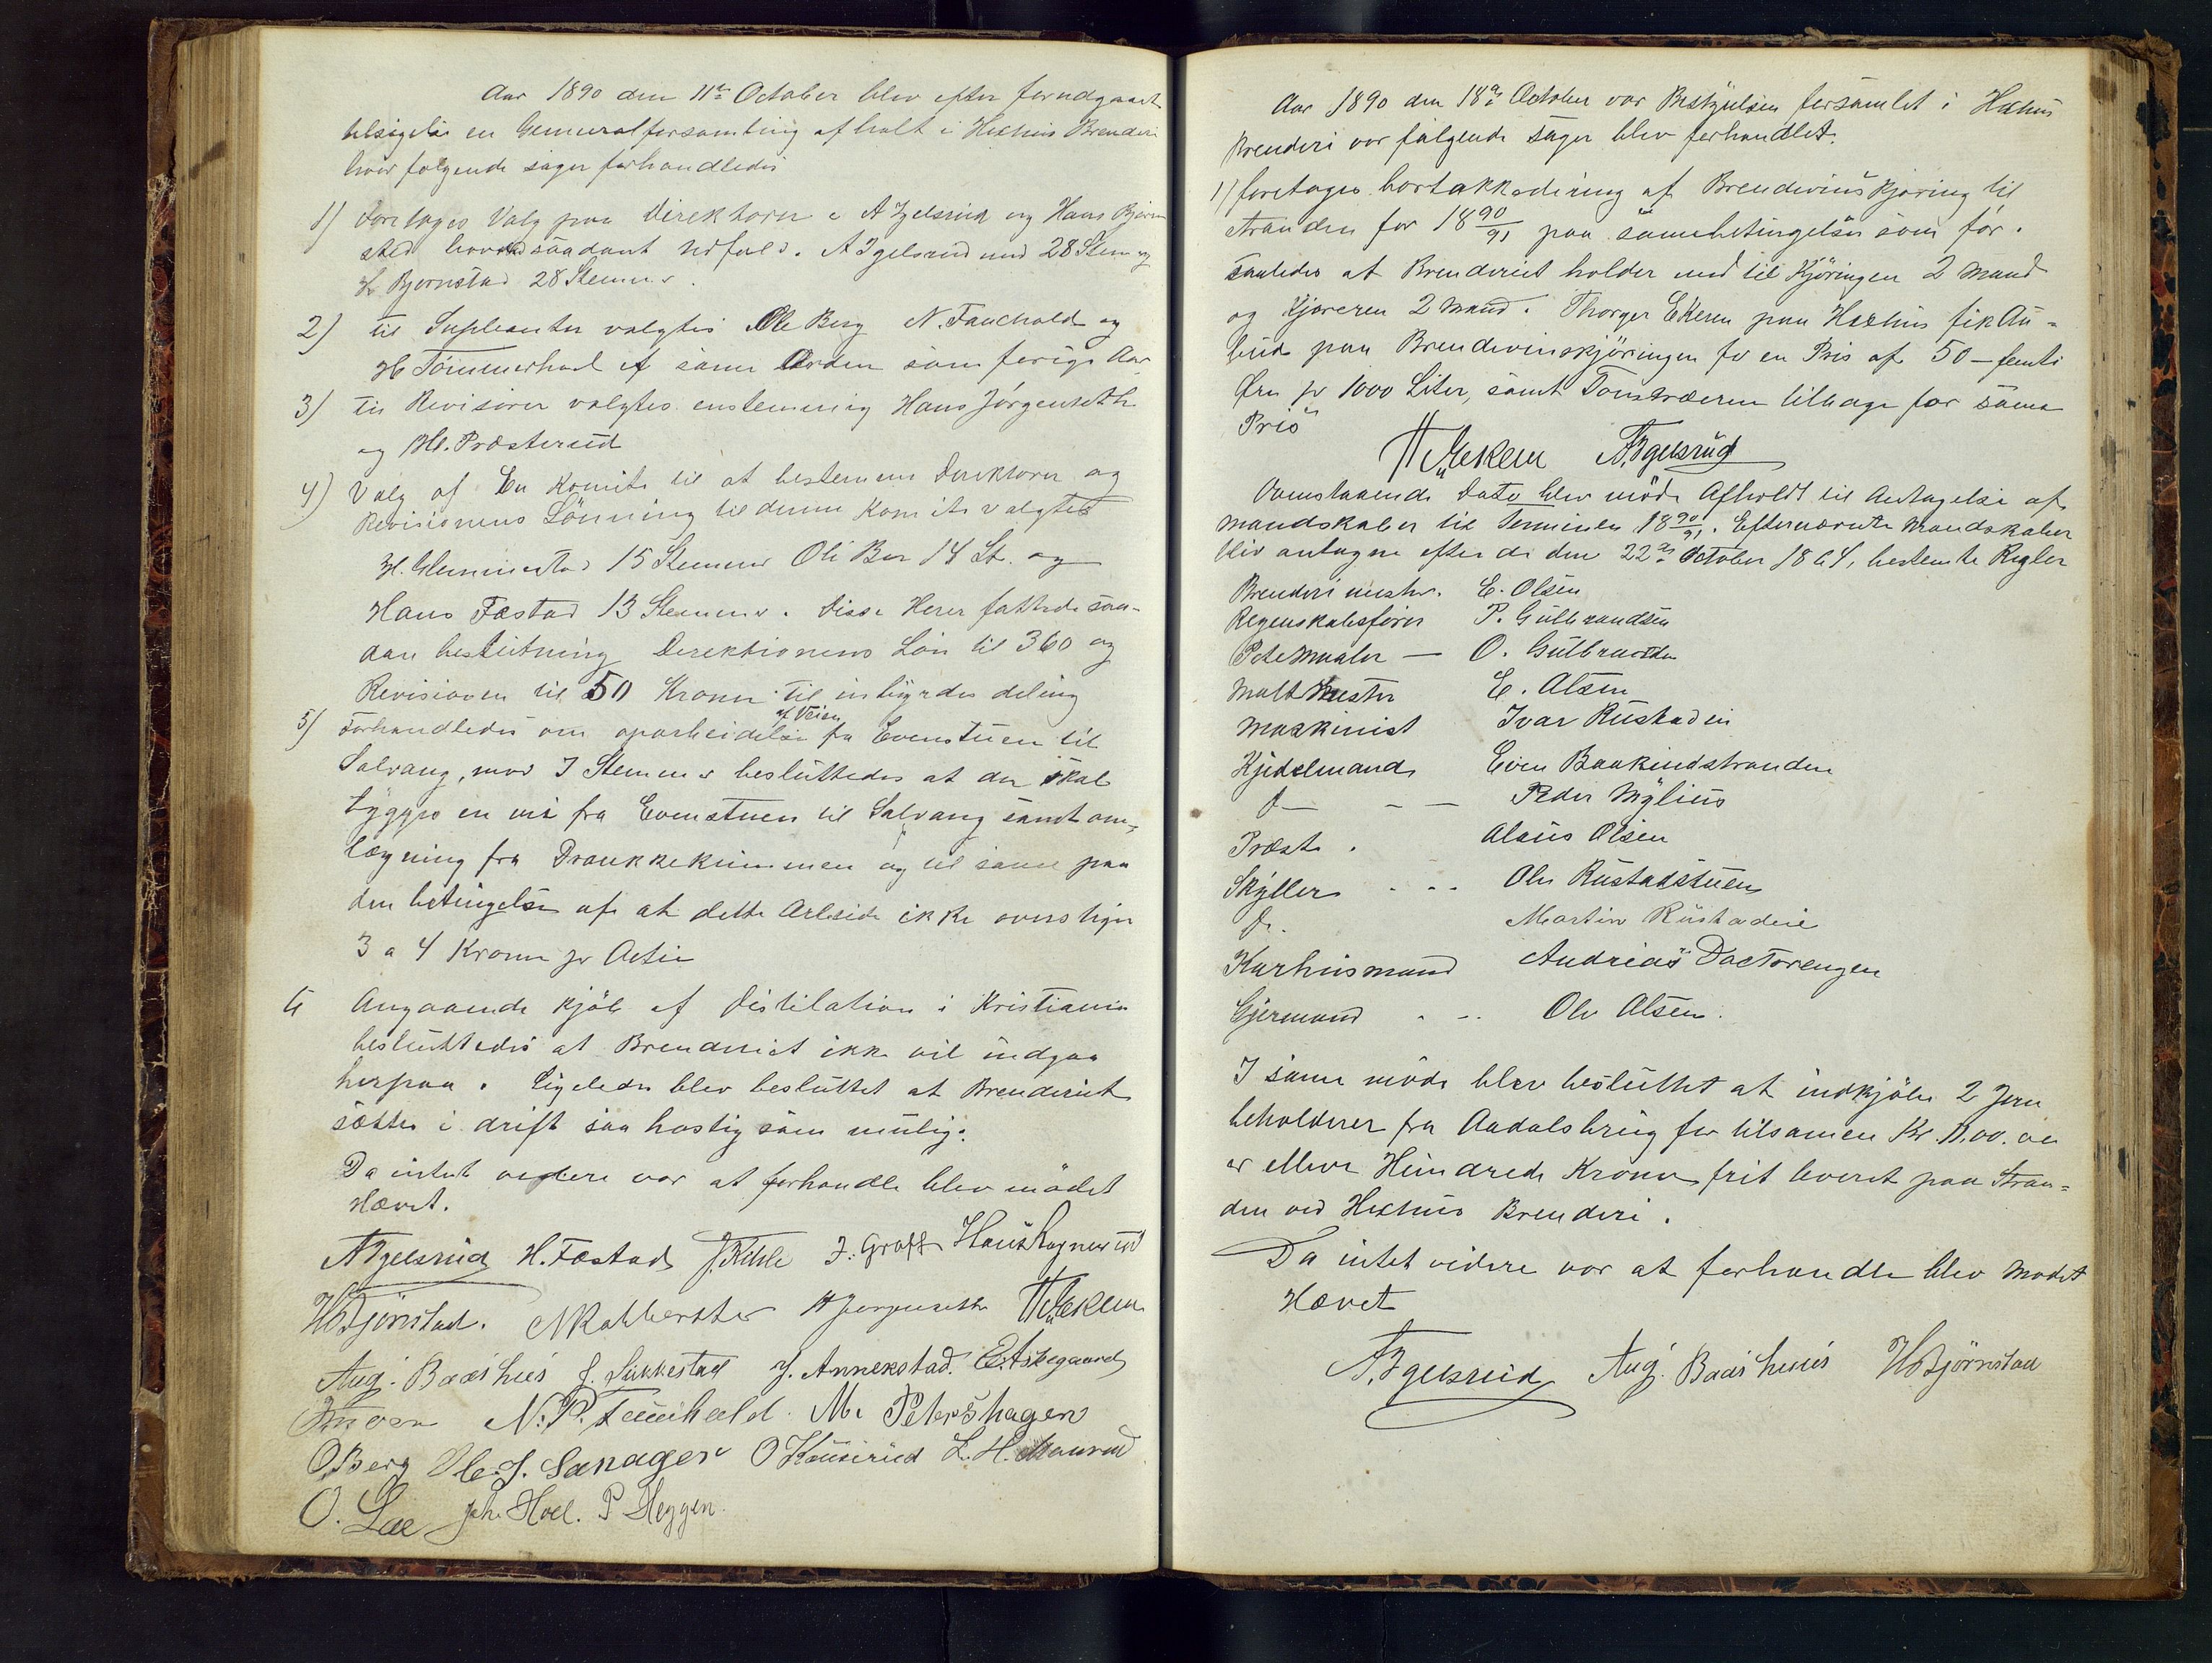 Aar 1890 den 11te October blev efter forudgaaet
tilsigelse en Generalforsamling afholt i Hexhus Brenderi
hvor følgende sager forhandledes
1) Foretoges Valg paa Direktører A Igelsrud og Hans Bjørn
stad hvorved saadant Udfald. A Igelsrud med 28 Stem og
H Bjørnstad 28 Stemmer.
2) til Supleanter valgtes Ole Berg N. Fauchald og
H Tømmerhool i samme Orden som forige Aar
3) til Revisorer valgtes enstemmig Hans Jørgenseth
og M. Præsterud
4) Valg af En Komite til at bestemme Direktører og
Revisionens Lønning til denne Komite valgtes
H. Glemmestad 15 Stemmer Ole Ber 14 St. og
Hans Fæstad 13 Stemmer. Disse Herer fattede saa-
dan beslutning Derektionens Løn til 360 og
Revisionen til 50 Kroner til inbyrdes deling
af Veien
5) Forhandledes om oparbeidelse fra Evenstuen til
Salvang, mod 7 Stemmer besluttedes at der skal
bygges en vei fra Evenstuen til Salvang samt om-
lægning fra Drankkekummen og til samme paa
den betingelse af at dette Arbeide ikke overstiger
3 a 4 Kroner pr Actie
6 Angaaende kjøb af Distilation i Kristiania
besluttedes at Brenderiet ikke vil indgaa
herpaa. Ligeledes blev besluttet at Brenderiet
sættes i drift saa hastig som mulig.
Da intet vedere var at forhandle blev mødet
Hævet.
A Igelsrud H. Fæstad J. Kihle J. Graff Hans Rognerud
H Bjørnstad. N Kolberster H Jørgenseth TH Ekern
Aug. Baashus J. Sukkestad J. Annexstad. E. Askegaard
N. P. Fauchald. M. Petershagen
O Berg Ole J. Sanager O Kauserud L. H. Maurud
O. Lae Joh. Hoel. P Heggen.
Aar 1890 den 18de October var Bestyrelsen forsamlet i Hexhus
Brenderi vor følgende sager blev forhandlet.
1) foretoges bortakkodering af Brendevinskjøring til
stranden for 1890/91 paa samme betingelser som før.
saaledes at Brenderiet holder med til Kjøringen 2 Mand
og Kjøreren 2 Mand. Thorger Ekeren paa Hexhus fik An-
bud paa Brendevinskjøringen for en Pris af 50 – femti
Øre pr 1000 Liter, samt Tomtræerne tilbage for samme
Pris
TH Ekern A. Igelsrud
Ovenstaaende Dato blev møde Afholdt til Antagelse af
mandskaber til Terminen 1890/91. Efternævnte Mandskaber
blev antagne efter de den 22de October 1864, bestemte Regler
Brenderimester. E. Olsen
Regenskabsfører P. Gulbrandsen
Potemaaler — O. Gulbrandsen
Maltmester E. Olsen
Maskinist Ivar Rustadeie
Kjedelmand Even Baakindstranden
D— — — Peder Mylius
Præste. Alsius Olsen
Skyller - - - Ole Rustadstuen
D. Martin Rustadeie
Karhusmand Andreas Doctorengen
Gjermand - - - Ole Olsen.
I samme møde blev besluttet at indkjøbe 2 Jern
beholderer fra Aadalsbrug for tilsamen Kr. 11,00. en
er elleve Hundrede Kroner frit leveret paa Stran-
den ved Hexhus Brenderi.
Da intet videre var at forhandle blev Mødet
Hævet
A. Igelsrud Aug. Baashuus H Bjørnstad